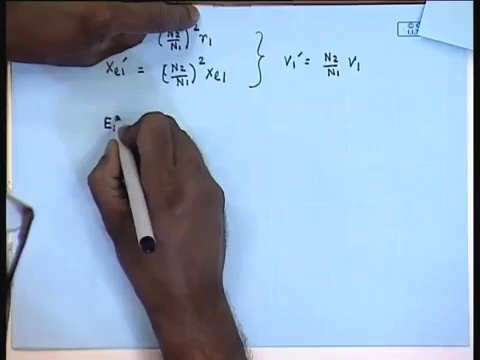 (N2/N1)² r1
xe1' = (N2/N1)² xe1 } V1' = N2/N1 V1
E1